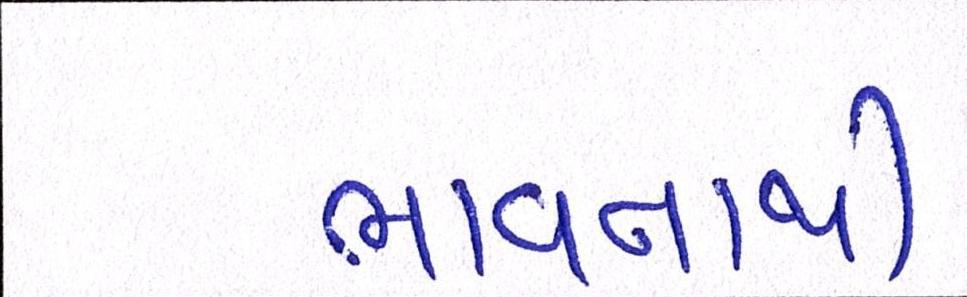 ભાવનાથી